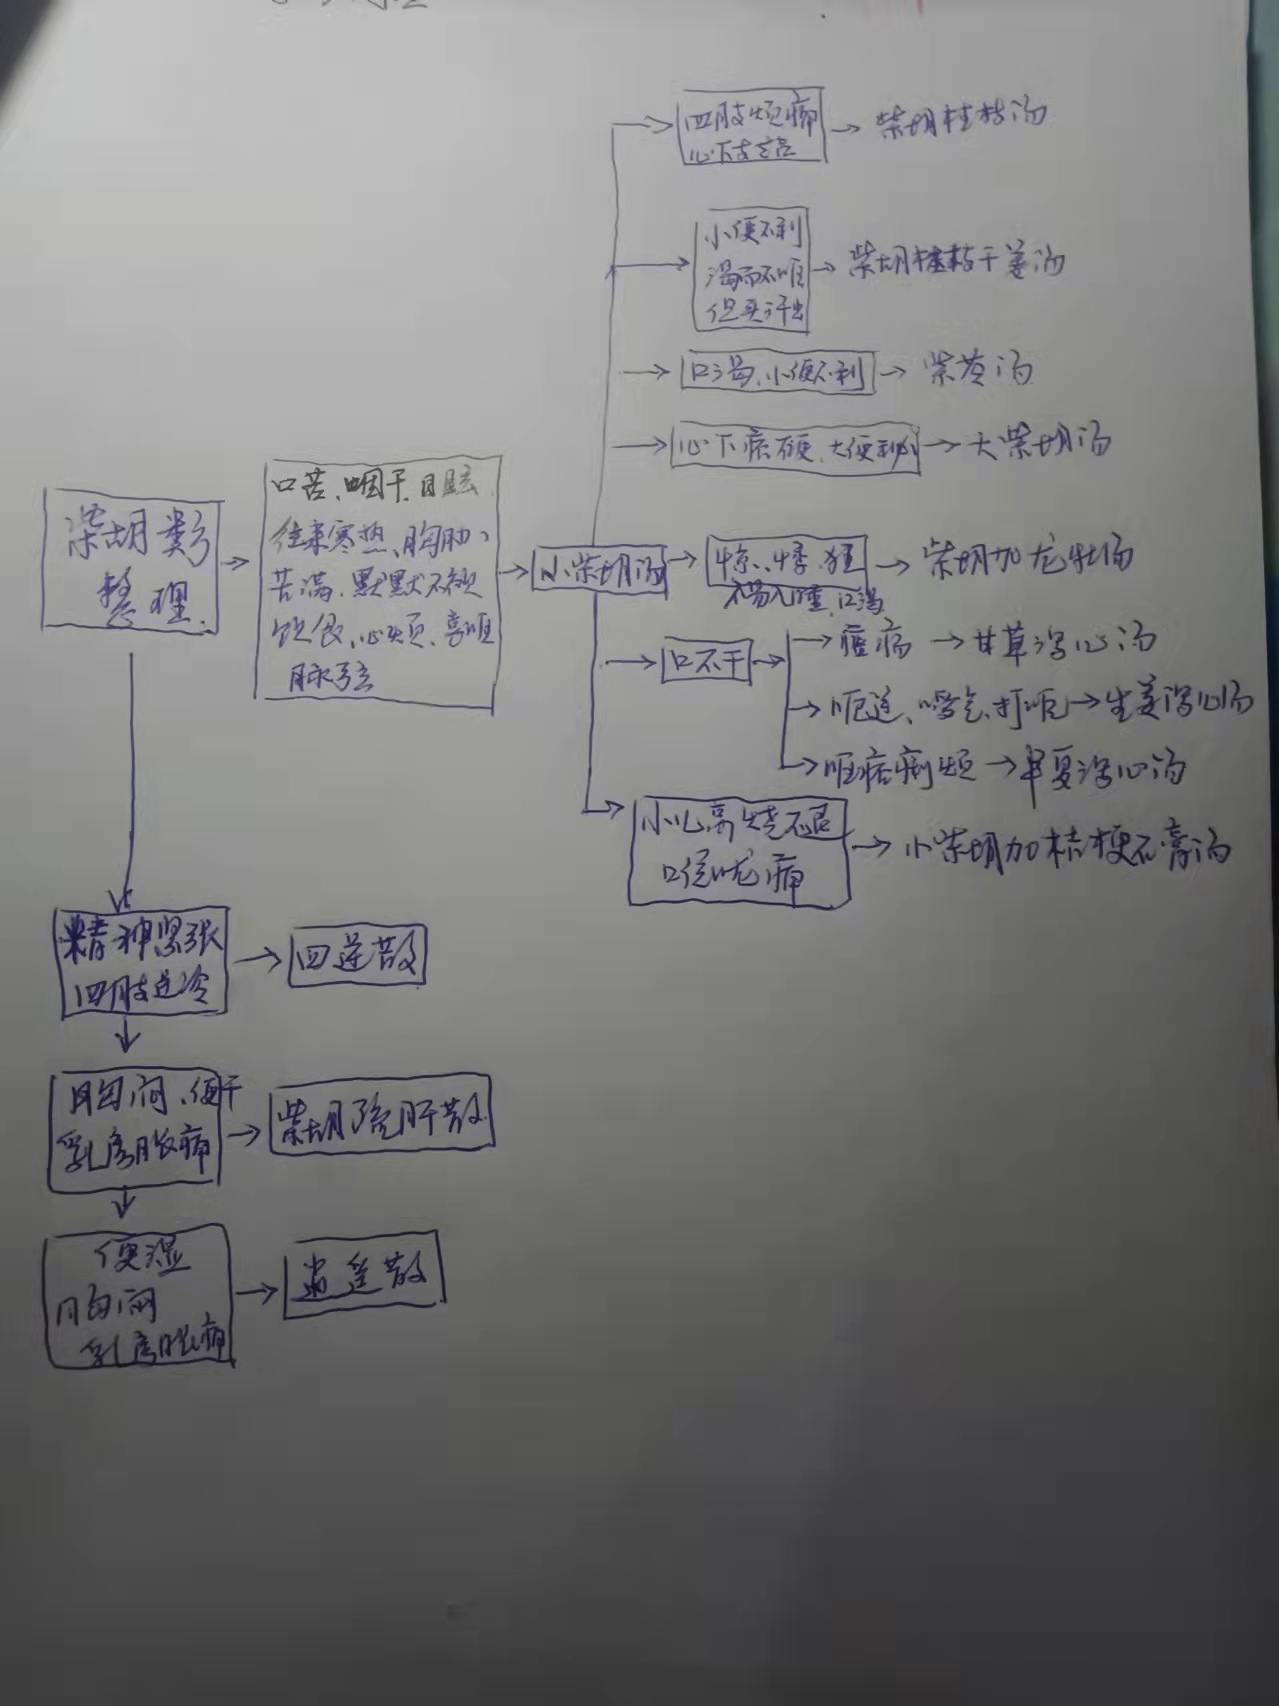 柴胡类
整理
口苦、咽干、目眩
往来寒热、胸胁
苦满、默默不欲
饮食、心烦、喜呕
脉弦
小柴胡汤
四肢烦痛
心下支结
柴胡桂枝汤
小便不利
渴而不呕
但头汗出
柴胡桂枝干姜汤
口渴、小便不利
柴苓汤
心下痞硬、大便秘
大柴胡汤
惊、悸、狂
不易入睡、口渴
柴胡加龙牡汤
口不干
疡 甘草泻心汤
呃逆、嗳气、打呃 生姜泻心汤
呕痞利烦 半夏泻心汤
小儿高烧不退
口疮咙痛
小柴胡加桔梗石膏汤
精神紧张
四肢逆冷
四逆散
胸闷、便干
乳房胀痛
柴胡疏肝散
便湿
胸闷
乳房胀痛
逍遥散